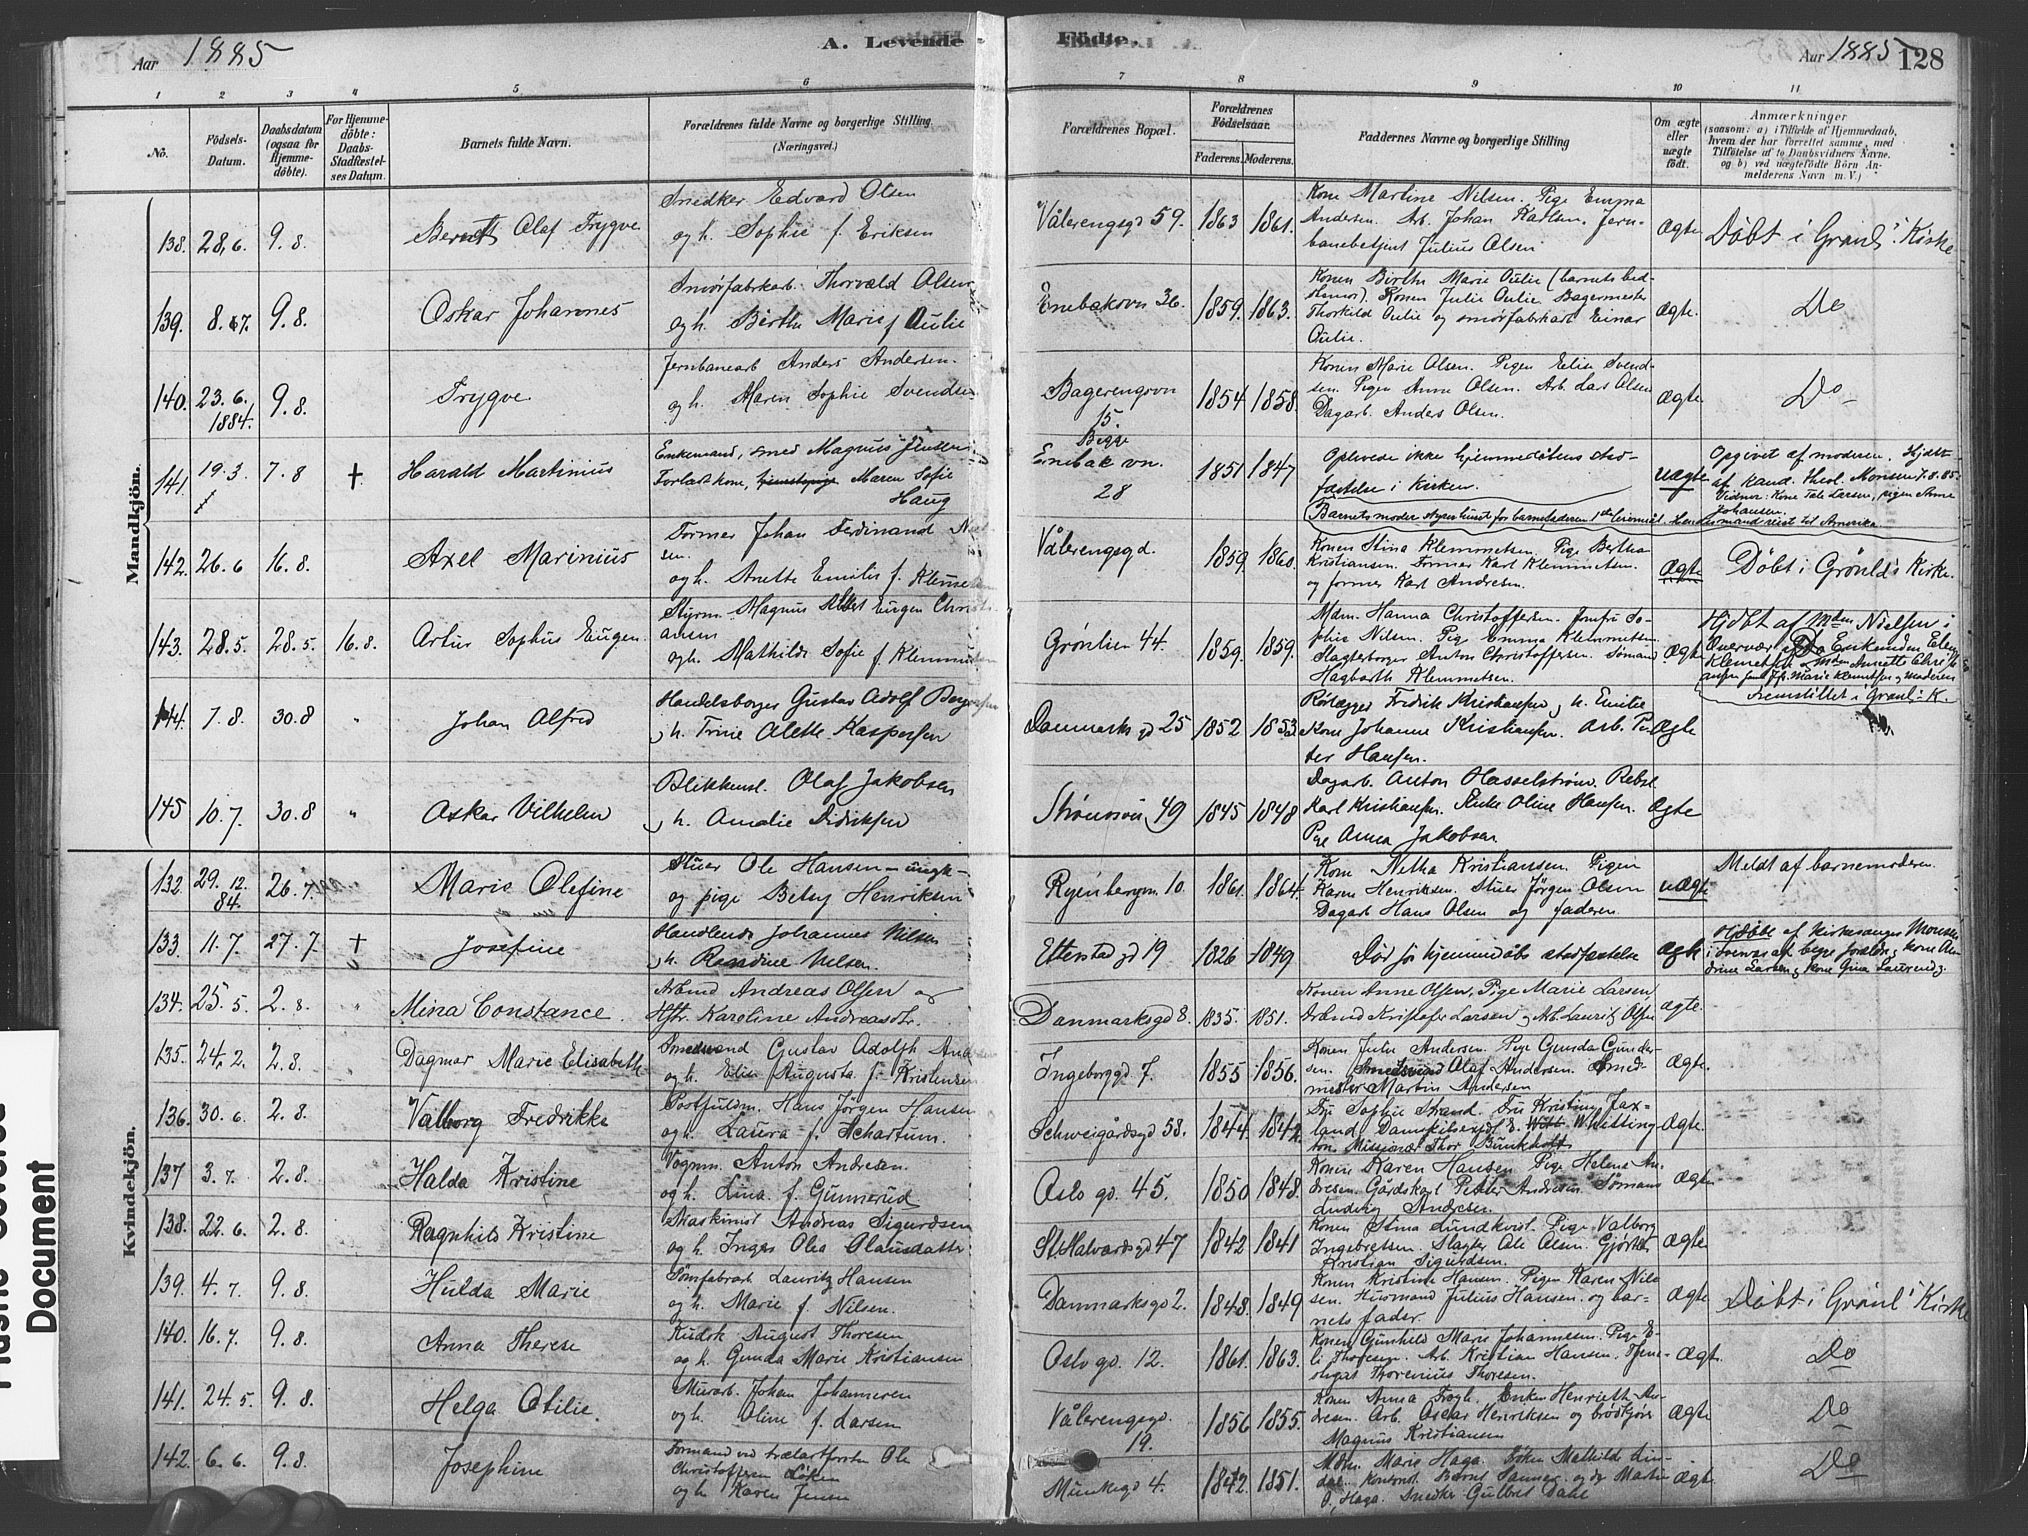 Aar 1885
A. Levende Fødte.
Aar 1885 128
1 2 3 4 5 6 7 8 9 10 11
No.
Fødsels-
Datum.
Daabsdatum
(ogsaa for
Hjemme-
døbte).
For Hjemme-
døbte:
Daabs-
Stadfæstel-
ses Datum.
Barnets fulde Navn.
Forældrenes fulde Navne og borgerlige Stilling.
(Næringsvei.)
Forældrenes Bopæl.
Forældrenes
Fødselsaar.
Faderens. Moderens.
Faddernes Navne og borgerlige Stilling
Om ægte
eller
uægte
født.
Anmærkninger
(saasom: a) i Tilfælde af Hjemmedaab,
hvem der har forrettet samme, med
Tilføielse af to Daabsvidners Navne.
og b) ved uægtefødte Børn An-
melderens Navn m. V.)
Mandkjön.
138. 28.6. 9.8. Bernt Olaf Trygve
Snedker Edvard Olsen
og h. Sophie f. Eriksen
Vålerengsgd 59. 1863 1861.
Kone Martine Nilsen. Pige Emma
Andersen. Arb. Johan Karlsen. Jern-
banebetjent Julius Olsen
Ægte Døbt i Grønl. Kirke
139. 8.7. 9.8. Oskar Johannes
Smørfabrkarb. Thorvald Olsen
og h. Birthe Marie f Aulie
Enebakvn 36. 1859. 1863.
Konen Birthe Marie Aulie (barnets bed-
stemor). Konen Julie Aulie, Bagermester
Thorkild Aulie og smørfabrkarb Einar
Aulie.
Ægte. Do
140. 23.6. 1884. 9.8. Trygve
Jernbanearb Anders Andersen.
og h. Maren Sophie Svendsen
Bagerengvn
15. 1854 1858.
Konen Marie Olsen. Pigen Elise Svend-
sen. Pigen Anne Olsen. Arb. Lars Olsen
Dagarb. Anders Olsen.
Ægte Do
141. 19.3. 7.8 † Harald Martinius
Enkemand, smed Magnus Jensen
Forladt kone, Maren Sofie
Haug
Begge
Enebakvn.
28 1851 1847
Oplevede ikke hjemmedåbens stad-
fæstelse i kirken.
Uægte
Opgivet af moderen. Hjdbt
af kand. theol. Monsen 7.8.85.
Vidner: Kone Tale Larsen, pigen Anne
Johansen.
Barnets moder styrer huset for barnefaderen 1ste leiermål. Hendes mand reist til Amerika
142. 26.6 16.8. Axel Marinius
Former Johan Ferdinand Niel-
sen.
og h. Anette Emilie f. Klemmetsen
Vålerengsgd. 1859 1860.
Konen Stina Klemmetsen. Pige Bertha
Kristiansen. Former Karl Klemmetsen.
og former Karl Andresen.
Ægte Døbt i Grønld's Kirke.
143. 28.5. 28.5. 16.8. Artur Sophus Eugen.
Styrm. Magnus Albert Eugen Christi-
ansen
og h. Mathilde Sofie f. Klemmetsen
Grønlien 44. 1859. 1859.
Mdm. Hanna Christoffersen. Jomfru So-
phie Nilsen. Pige Emma Klemmetsen.
Slagterborger Anton Christoffersen. Sømand
Hagbarth Klemmetsen.
Ægte
Hjdbt af Mdm Nielsen i
Overvær af Enkemdm Elen
Klemetsen
Fremstillet i Grønl. K.
144. 7.8. 30.8 " Johan Alfred
Handelsborger Gustav Adolf Borgersen
h. Trine Alette Kaspersen
Danmarks gd 25 1852 1853
Rørlægger Fredrik Kristiansen, h. Emilie
Kone Johanne Kristiansen. Arb. Pe-
ter Hansen.
Ægte
145 10.7. 30.8 " Oskar Vilhelm
Blikkensl. Olaf Jakobsen
h. Amalie Didriksen
Strømsvn 49 1845 1848
Dagarb. Anton Hasselstrøm. Rebsl.
Karl Kristiansen. Enke Oline Hansen.
Pige Anna Jakobsen
Ægte
Kvindekjön.
132. 29.12.84. 26.7. Marie Olefine
Stuer Ole Hansen - ungk -
og pige Betsy Henriksen
Ryenbergvn. 10. 1861. 1864.
Kone Netha Kristiansen. Pigen
Karen Henriksen. Stuer Jørgen Olsen
Dagarb Hans Olsen og faderen.
uægte Meldt af barnemoderen.
133. 11.7. 27.7. † Josefine
Handlende Johannes Nilsen
h. Randine Nilsen.
Etterstad gd 19 1826 1849
Død før hjemmedåbs stadfæstelse
Ægte
Hjdøbt af kirkesanger Monsen
i overvær af begge forældre, kone An-
drine Larsen, kone Gina Laurendz.
134. 25.5. 2.8. " Mina Constance.
Arbmd Andreas Olsen og
Hstr. Karoline Andreasdtr.
Danmarksgd 8. 1835. 1851.
Konen Anne Olsen, Pige Marie Larsen,
Arbmd Kristofer Larsen, Arb. Lauritz Olsen
Ægte
135. 24.2. 2.8. Dagmar Marie Elisabeth
Smedsvend Gustav Adolph Andersen
og h. Elise Augusta f. Kristensen
Ingeborggd 7. 1855 1856.
Konen Julie Andersen. Pige Gunda Gunder-
sen. Smedsvend Olaf Andersen. Smed-
mester Martin Andersen
Ægte.
136. 30.6. 2.8. Valborg Fredrikke
Postfuldm. Hans Jørgen Hansen
og h. Laura f. Schartum.
Schweigårdsgd 58. 1844. 1842.
Fru Sophie Strand. Fru Kristine Fax-
land, Damskibsexpd E. Whitting-
ton Missionær Thor Bunkholt
Ægte.
137 3.7. 2.8. Halda Kristine
Vognm. Anton Andresen.
og h. Lina f. Gunnerud
Oslo gd. 45. 1850 1848.
Konen Karen Hansen Pige Helene An-
dresen. Gårdskarl Petter Andresen Sømand
Ludvig Andresen.
Ægte
138. 22.6. 2.8. Ragnhild Kristine
Maskinist Andreas Sigurdsen
og h. Inger Olea Olausdatter
St Halvardsgd 47 1842 1841
Konen Stina Lundkvist. Pige Valborg
Ingebretsen. Slagter Ole Olsen. Gjørtler
Kristian Sigurdsen.
Ægte
139. 4.7. 9.8. Hulda Marie
Sømfabrarb Lauritz Hansen
og h. Marie f. Nilsen.
Danmarksgd 2. 1848. 1849
Konen Kristine Hansen. Pigen Karen Nil-
sen. Husmand Julius Hansen. og bar-
nets fader.
Ægte Døbt i Grønl. Kirke
140. 16.7. 9.8. Anna Therese
Kudsk August Thoresen
og h. Gunda Marie Kristiansen
Oslo gd. 12. 1861. 1863.
Konen Gunhild Marie Johannesen. Pige E-
li Thoresen. Arb. Kristian Hansen. Tjene-
stegut Thorenius Thoresen.
Ægt. Do
141. 24.5. 9.8. Helga Otilie.
Murarb. Johan Johannesen
og h. Oline f. Larsen
Vålerengsgd.
19. 1856 1855.
Konen Anna Frogh. Enken Henriette An-
dresen. Arb. Oscar Henriksen og brødkjører
Magnus Kristiansen
Ægte Do
142. 6.6. 9.8. Josephine
Formand ved trælastforstn Ole
Christoffersen Løken
og h. Karen Jensen
Munkegd 4. 1842. 1851.
Mdm. Marie Haga. Frøken Mathilde Lin-
dal. Kontorist Bernt Sannes og Martin
O. Haga. Snedker Gulbret Dahl
Ægte Do
Document